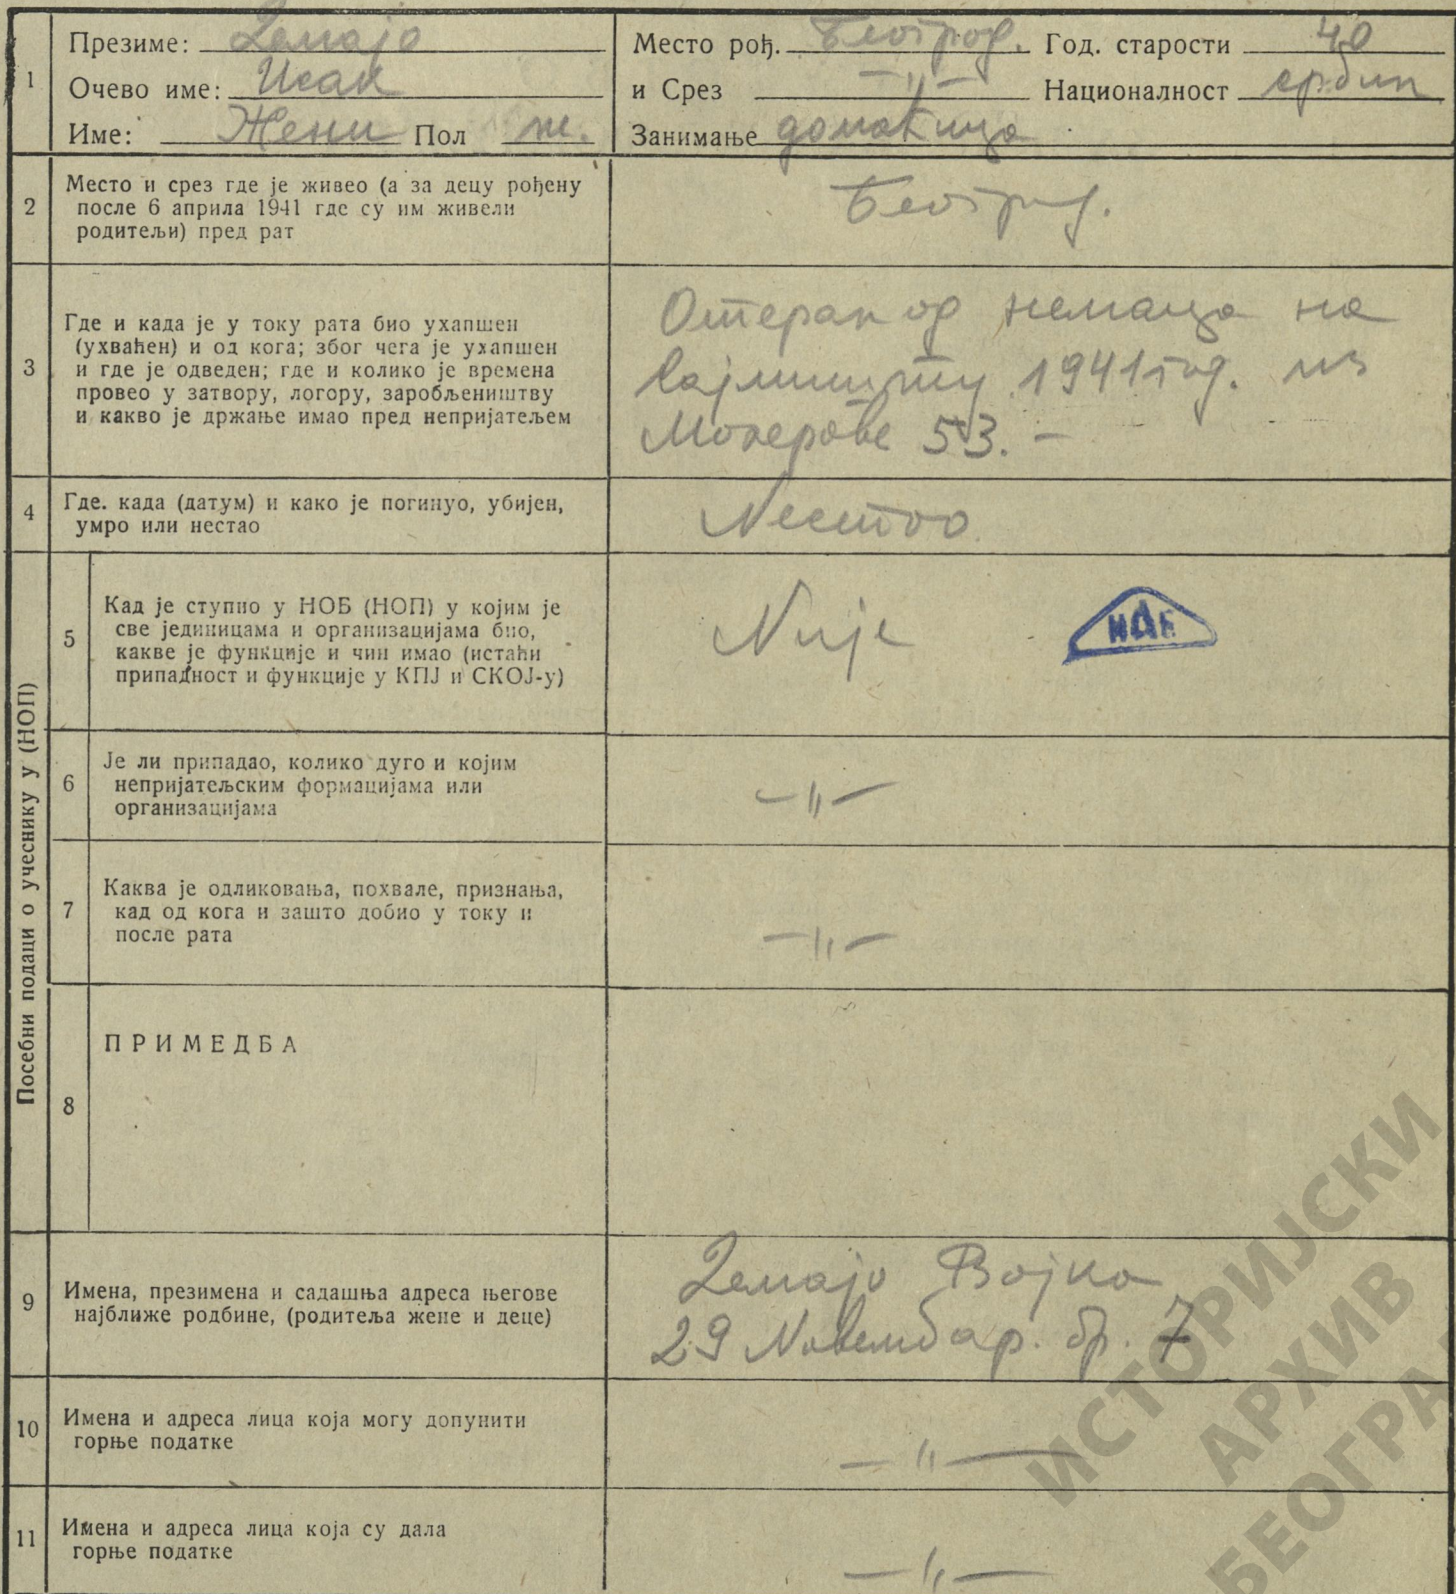 1
Презиме: Демајо
Очево име: Исак
Име: Жени Пол ж.
Место рођ. Београд. Год. старости 40
и Срез —„— Националност србин
Занимање домаћица
2
Место и срез где је живео (а за децу рођену
после 6 априла 1941 где су им живели
родитељи) пред рат
Београд.
3
Где и када је у току рата био ухапшен
(ухваћен) и од кога; због чега је ухапшен
и где је одведен; где и колико је времена
провео у затвору, логору, заробљеништву
и какво је држање имао пред непријатељем
Отеран од немаца на
Сајмишту 1941 год. из
Мокерове 53. —
4
Где. када (датум) и како је погинуо, убијен,
умро или нестао
Нестао
Посебни подаци о учеснику у (НОП)
5
Кад је ступио у НОБ (НОП) у којим је
све јединицама и организацијама био,
какве је функције и чин имао (истаћи
припадност и функције у КПЈ и СКОЈ-у)
Није
6
Је ли припадао, колико дуго и којим
непријатељским формацијама или
организацијама
—„—
7
Каква је одликовања, похвале, признања,
кад од кога и зашто добио у току и
после рата
—„—
8
ПРИМЕДБА
9
Имена, презимена и садашња адреса његове
најближе родбине, (родитеља жене и деце)
Демајо Војка
29 Новембар. бр. 7
10
Имена и адреса лица која могу допунити
горње податке
—„—
11
Имена и адреса лица која су дала
горње податке
—„—
ИСТОРИЈСКИ
АРХИВ
БЕОГРА